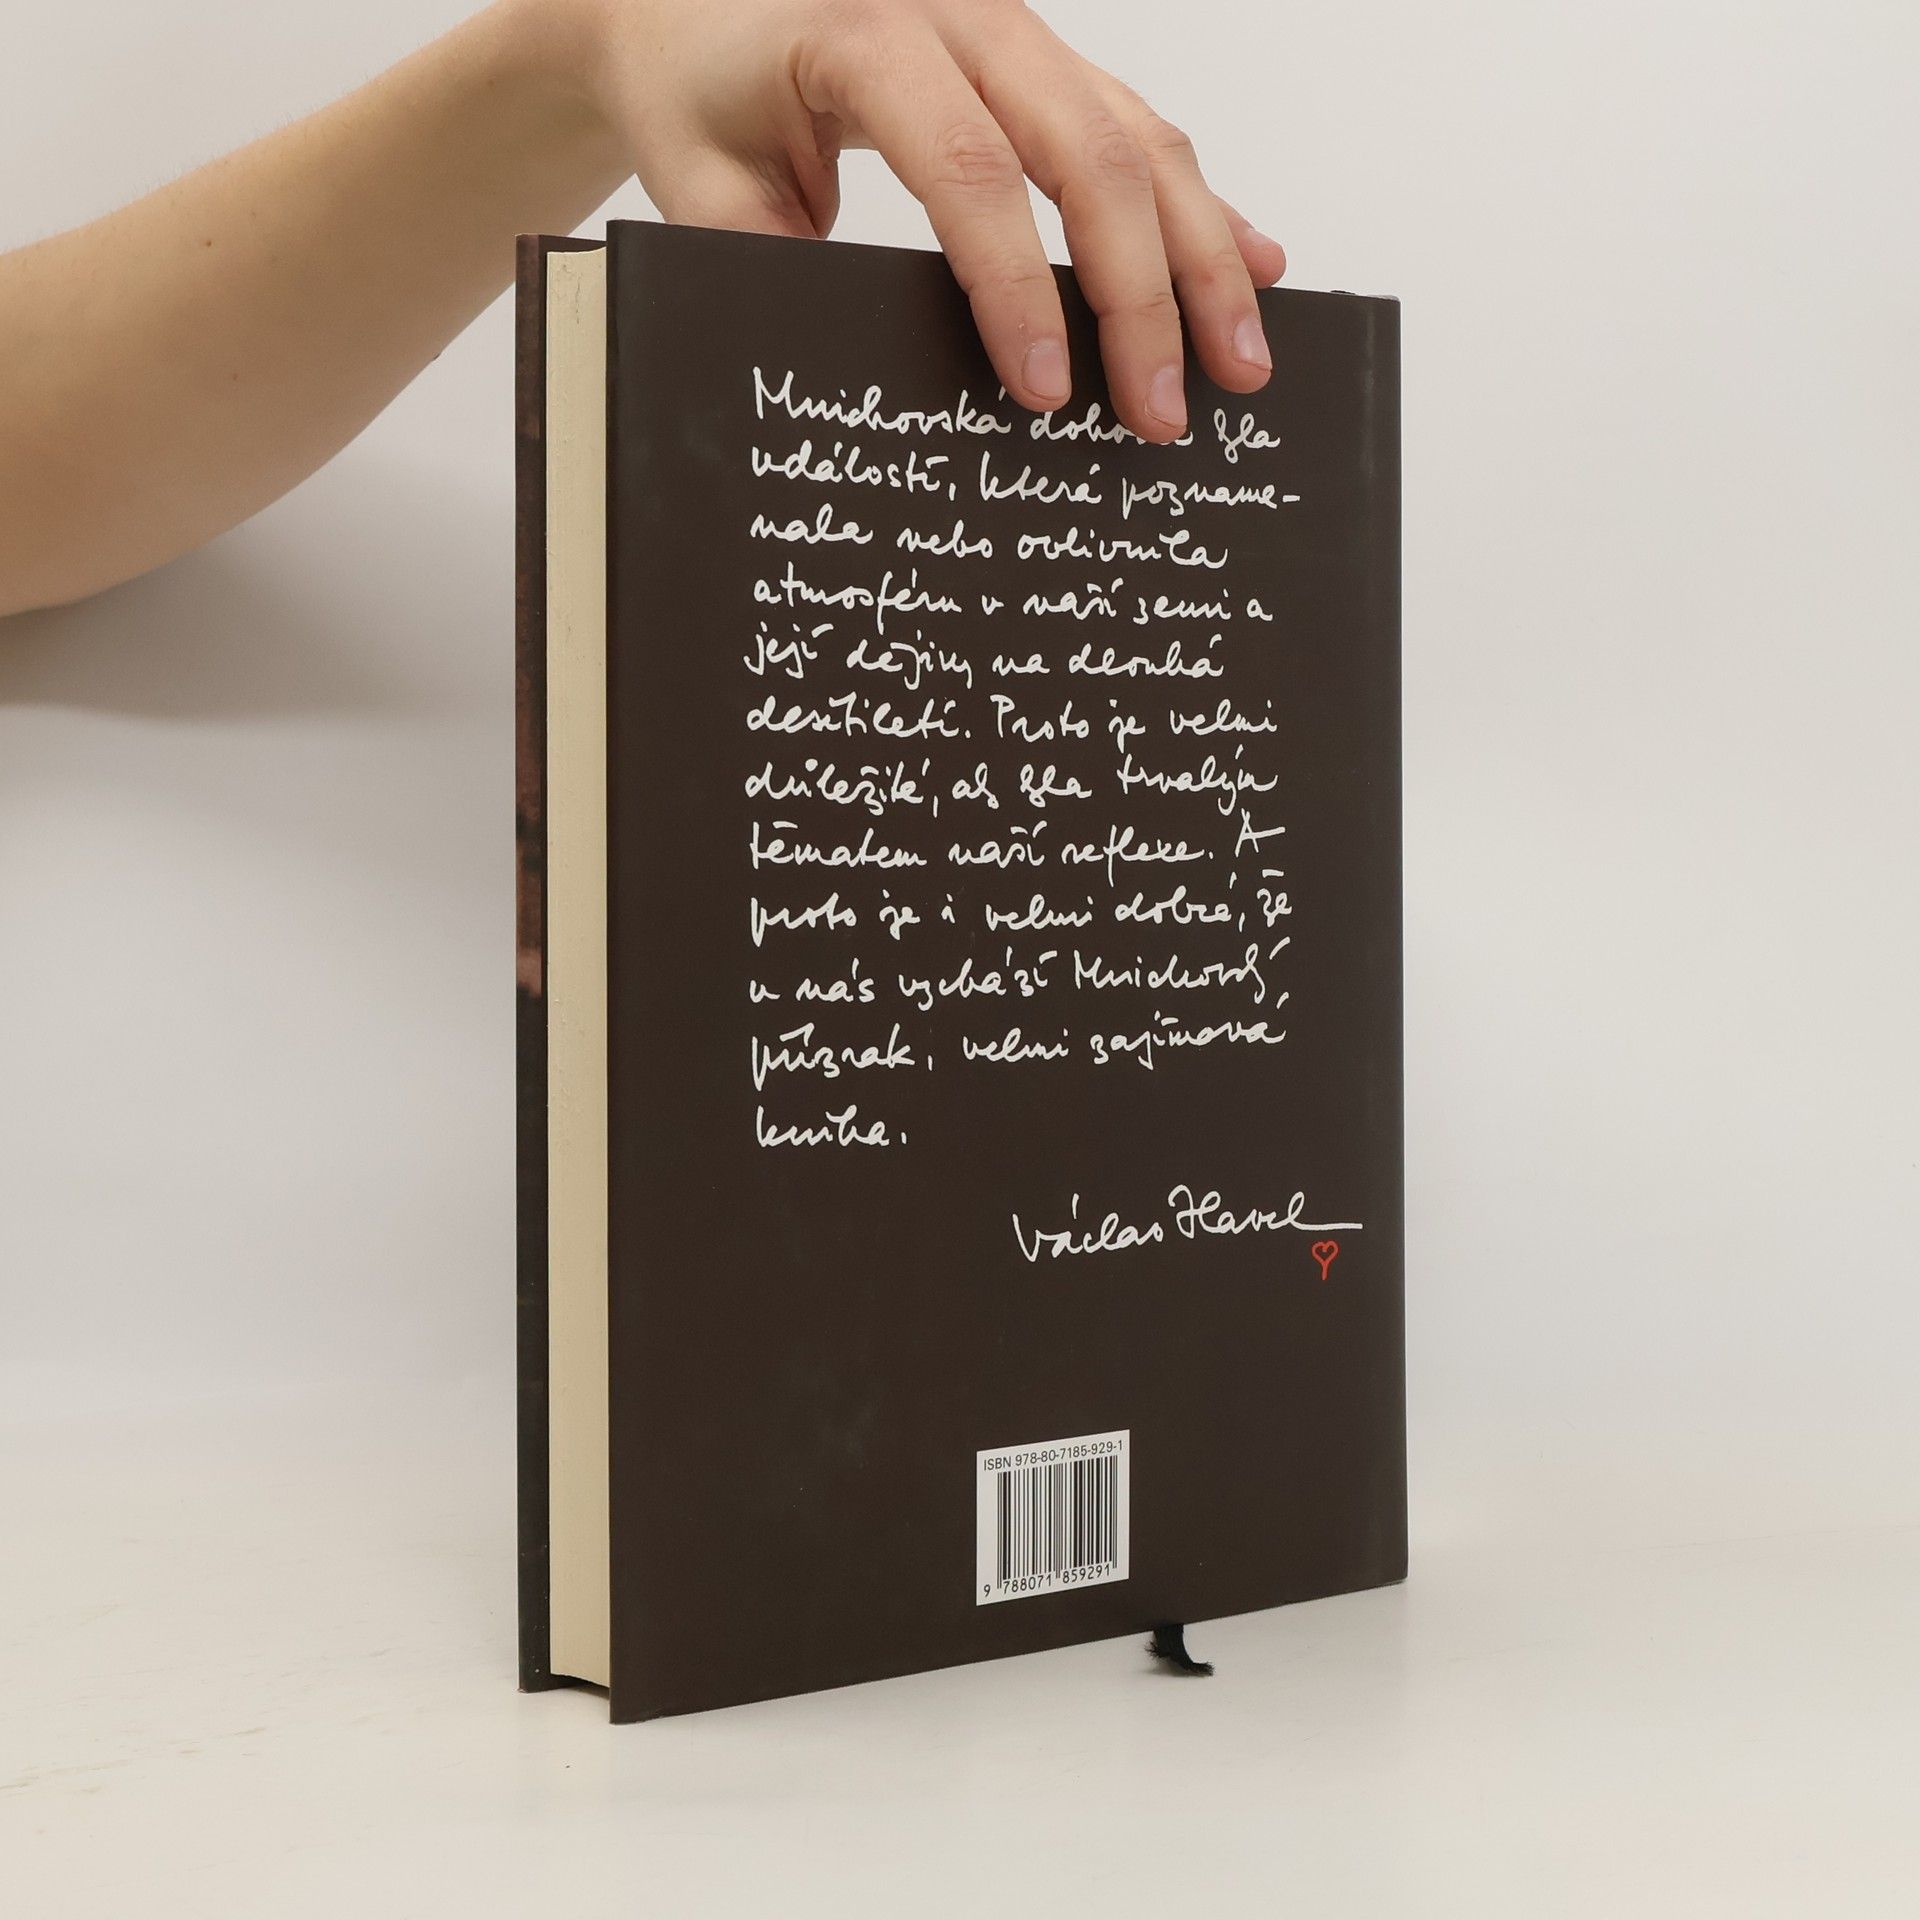 Mnichovská dohoda byla
událostí, která pozname-
nala nebo ovlivnila
atmosféru v naší zemi a
její dějiny na dlouhá
desítiletí. Proto je velmi
důležité, aby byla trvalým
tématem naší reflexe. A
proto je i velmi dobré, že
u nás vychází Mnichovský
přízrak, velmi zajímavá
kniha.
Václav Havel
ISBN 978-80-7185-929-1
9 788071 859291